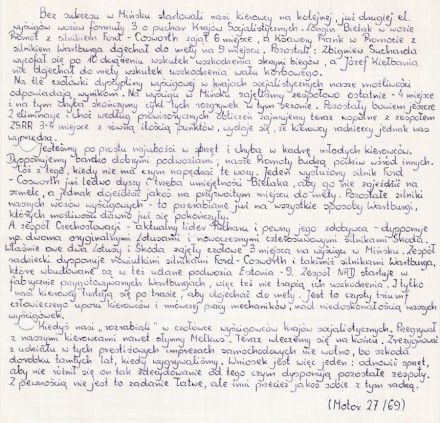 Bez sukcesu w Mińsku startowali nasi kierowcy na kolejnej, już drugiej el.
wyścigów wozów formuły 3 o puchar Krajów Socjalistycznych. Longin Bielak w wozie
Promot z silnikiem Ford - Cosworth zajął 6 miejsce, a Ksawery Frank w Promocie z
silnikiem Wartburga dojechał do mety na 9 miejscu. Pozostali: Zbigniew Suchanda
wycofał się po 10 okrążeniu wskutek uszkodzenia skrzyni biegów, a Józef Kiełbania
nie dojechał do mety wskutek uszkodzenia wału korbowego.
Na tle czołówki dyscypliny wyścigowej w krajach socjalistycznych nasze możliwości
odpowiadają wynikom. Na wyścigu w Mińsku zajęliśmy zespołowo ostatnie - 4 miejsce
i na tym chyba skończymy cykl tych rozgrywek w tym sezonie. Pozostały bowiem jeszcze
2 eliminacje i choć według prowizorycznych obliczeń zajmujemy teraz wspólnie z zespołem
ZSRR 3-4 miejsce z równą ilością punktów, wydaje się, że kierowcy radzieccy jednak nas
wyprzedzą.
Jesteśmy po prostu najubożsi w sprzęt i chyba w kadrę młodych kierowców.
Dysponujemy bardzo dobrymi podwoziami; nasze Promoty budzą podziw wśród innych.
Cóż z tego, kiedy nie ma czym napędzać te wozy. Jeden wysłużony silnik Ford
- Cosworth już ledwo dyszy i trzeba umiejętności Bielaka, aby go nie zajeździć na
szmelc, a jednak dojeździć jakoś na przyzwoitym miejscu do mety. Pozostałe silniki
naszych wozów wyścigowych - to przerabiane już na wszystkie sposoby Wartburgi,
których możliwości dawno już się pokończyły.
A zespół Czechosłowacji - aktualny lider Pucharu i pewny jego zdobywca - dysponuje
np. dwoma oryginalnymi Lotusami i nowoczesnymi czterosuwowymi silnikami Skoda.
Właśnie owe dwa Lotusy i Skoda zajęły czołowe 3 miejsca na wyścigu w Mińsku. Zespół
radziecki dysponuje nowiutkimi silnikami Ford - Cosworth i takimiż silnikami Wartburga,
które wbudowane są w też udane podwozia Estonia - 9. Zespół NRD startuje w
fabrycznie przygotowanych Wartburgach, więc też nie trapią ich uszkodzenia. I tylko
nasi kierowcy tułają się po trasie, aby dojechać do mety. Jest to czysty triumf
człowieczego uporu kierowców i mrówczej pracy mechaników, nad niedoskonałością naszych
wyścigówek.
Kiedyś nasi „rozrabiali" w czołówce wyścigowców krajów socjalistycznych. Przegrywał
z naszymi kierowcami nawet słynny Melkus. Teraz wleczemy się na końcu. Zrezygnować
z udziału w tych prestiżowych imprezach samochodowych nie wolno, bo szkoda
dorobku tamtych lat, kiedy wygrywaliśmy. Wniosek jest więc jeden: odnowić sprzęt,
aby nie różnił się on tak zdecydowanie od tego czym dysponują pozostałe zespoły.
Z pewnością nie jest to zadanie łatwe, ale inni przecież jakoś sobie z tym radzą.
(Motor 27/69)